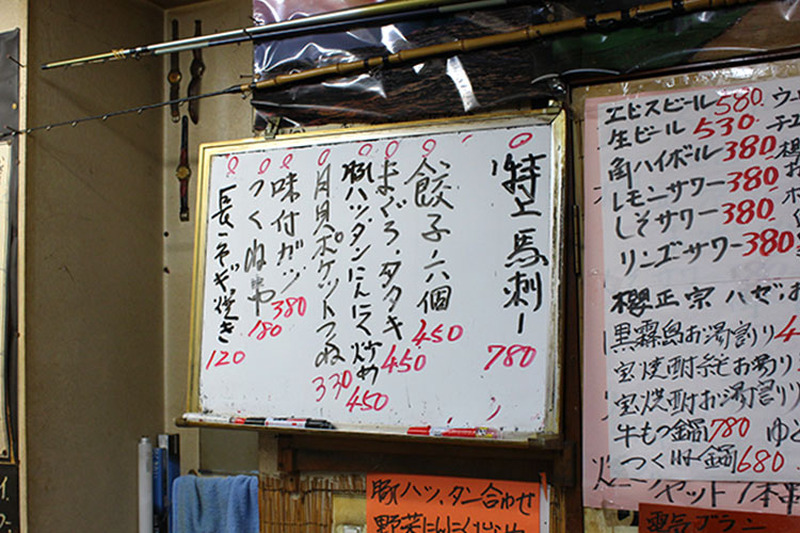 特上馬刺し 780
餃子・六個 450
まぐろ・タタキ 450
豚ハツ、タンにんにく炒め 450
月見ポケットつくね 330
味付ガツ 380
つくね串 180
長ネギ焼き 120
エビスビール 580
生ビール 530
角ハイボール 380
レモンサワー 380
しそサワー 380
リンゴサワー 380
櫻正宗
黒霧島お湯割り
宝焼酎お湯割り
牛もつ鍋 780
つくね鍋 680
豚ハツ、タン合わせ
野菜にんにく
電気ブラン